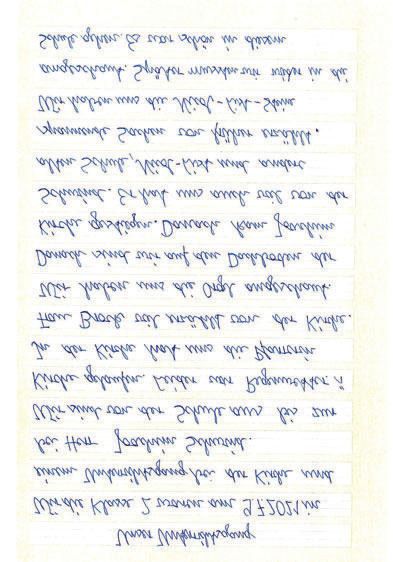 Unser Unterrichtsgang
Wir die Klasse 2 waren am 9.7.2021 in
einem Unterrichtsgang bei der Kirche und
bei Herr Joachim Schwind.
Wir sind von der Schule aus bis zur
Kirche gelaufen. Leider war Regenwetter.
In der Kirche hat uns die Pfarrerin
Frau Brock viel erzählt von der Kirche.
Wir haben uns die Orgel angeschaut.
Danach sind wir auf den Dachboden der
Kirche gestiegen. Danach kam Joachim
Schwind. Er hat uns auch viel von der
alten Schule, Nied-List und andere
spannende Sachen von früher erzählt.
Wir haben uns die Nied-List-Steine
angeschaut. Später mussten wir wieder in die
Schule gehen. Es war schön in diesem